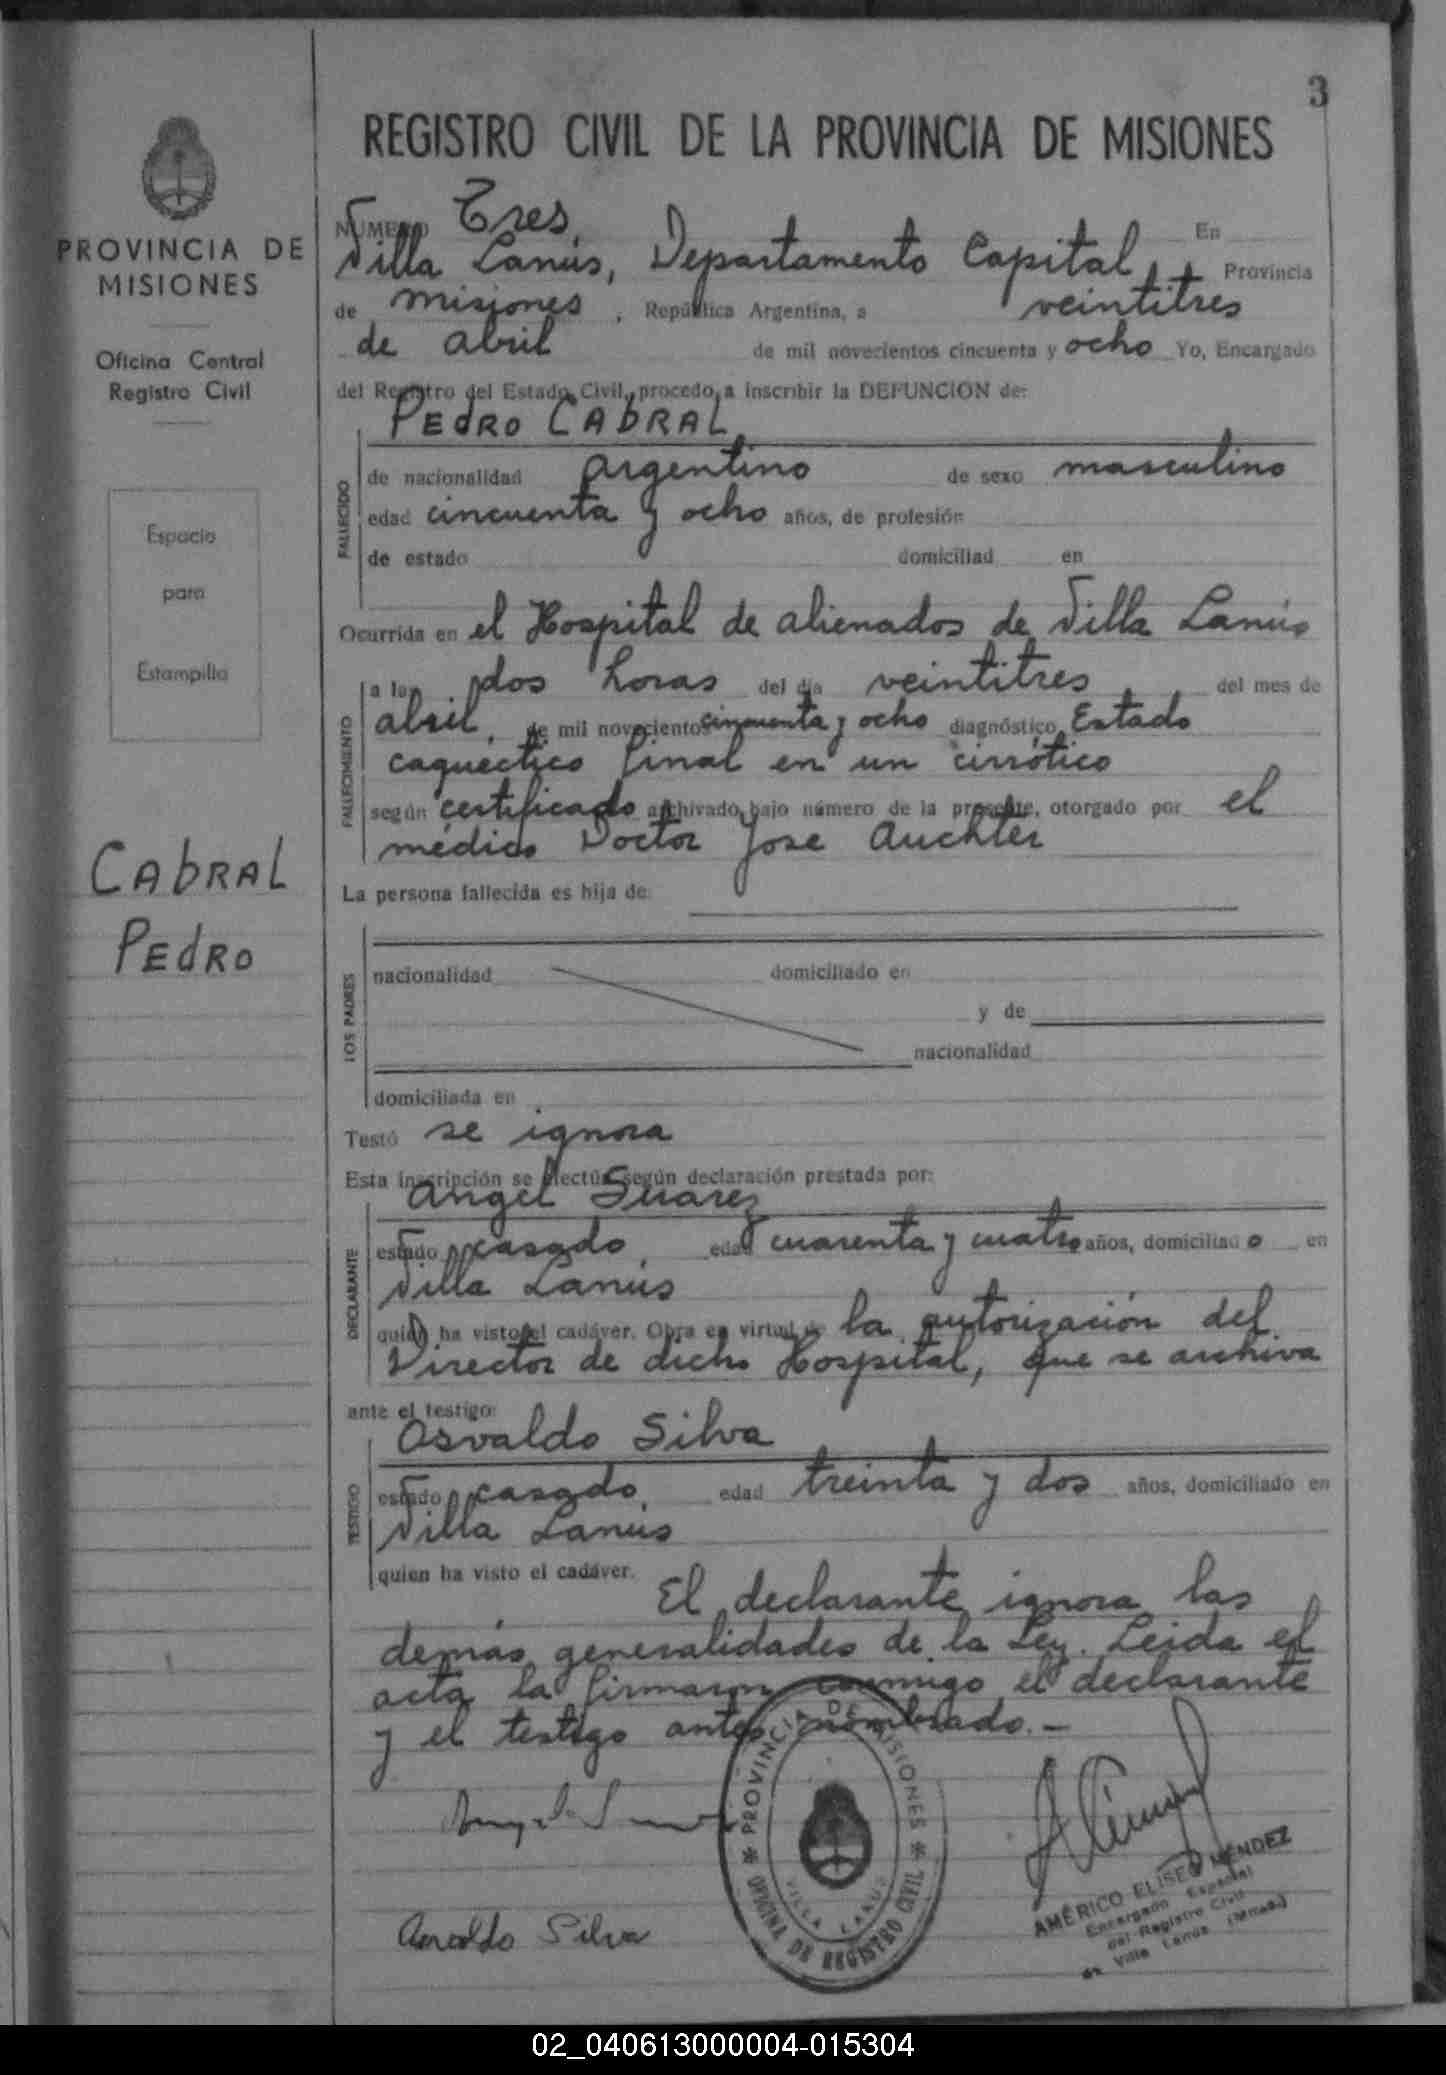 3
REGISTRO CIVIL DE LA PROVINCIA DE MISIONES
PROVINCIA DE
MISIONES
Oficina Central
Registro Civil
Espacio
para
Estampilla
CABRAL
PEDRO
NUMERO Tres, En
Villa Lanús, Departamento Capital, Provincia
de misiones, República Argentina, a veintitres
de abril de mil novecientos cincuenta y ocho Yo, Encargado
del Registro del Estado Civil, procedo a inscribir la DEFUNCION de:
PEDRO CABRAL
FALLECIDO
de nacionalidad argentino de sexo masculino
edad cincuenta y ocho años, de profesión
de estado domiciliad en
Ocurrida en el Hospital de alienados de Villa Lanús
FALLECIMIENTO
a las dos horas del día veintitres del mes de
abril, de mil novecientos cincuenta y ocho diagnóstico Estado
caquectico final en un cirrótico
según certificado archivado bajo número de la presente, otorgado por el
médico Doctor Jose Auchter
La persona fallecida es hija de:
LOS PADRES
nacionalidad domiciliado en
y de
nacionalidad
domiciliada en
Testó se ignora
Esta inscripción se efectúa según declaración prestada por:
Angel Suarez
DECLARANTE
estado casado, edad cuarenta y cuatro años, domiciliado en
Villa Lanús
quien ha visto el cadáver. Obra en virtud de la autorización del
Director de dicho Hospital, que se archiva
ante el testigo:
Osvaldo Silva
TESTIGO
estado casado, edad treinta y dos años, domiciliado en
Villa Lanús
quien ha visto el cadáver.
El declarante ignora las
demás generalidades de la Ley. Leida el
acta la firmaron conmigo el declarante
y el testigo antes nombrado.-
PROVINCIA DE MISIONES
VILLA LANUS
OFICINA DE REGISTRO CIVIL
AMÉRICO ELISEO MÉNDEZ
Encargado Especial
del Registro Civil
de Villa Lanús (Mnes.)
Osvaldo Silva
02_040613000004-015304